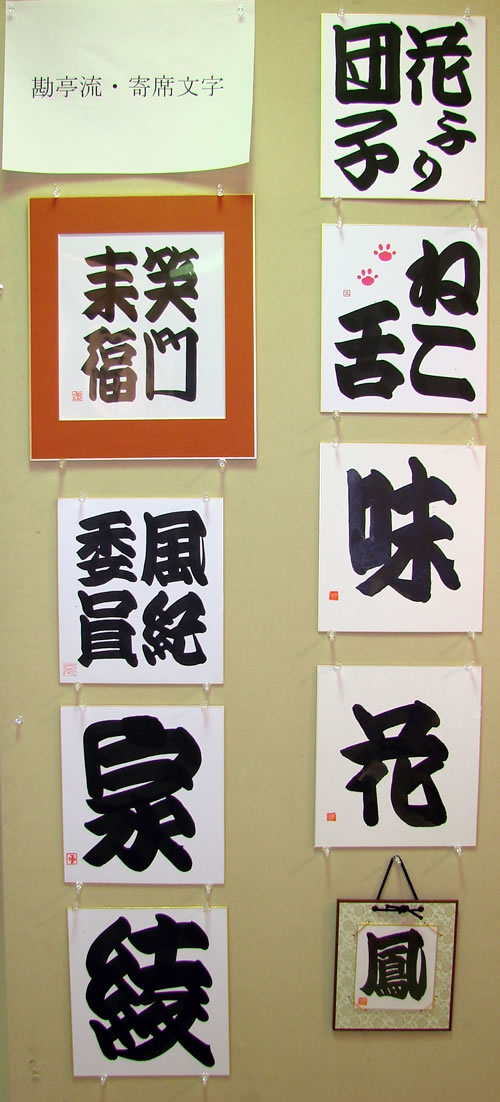 勘亭流・寄席文字
花より
団子
ねこ
舌
味
花
鳳
笑門
来福
風紀
委員
家
綾